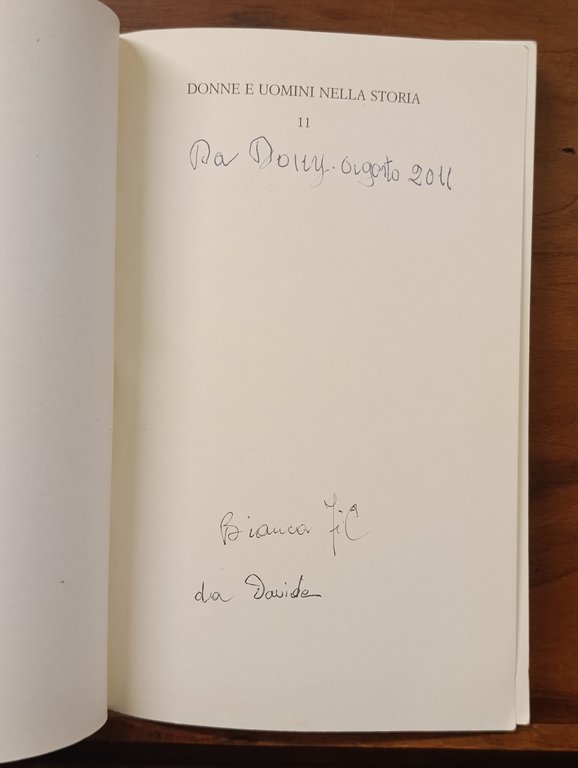 DONNE E UOMINI NELLA STORIA
11
Da agosto 2011
Bianca
da Davide